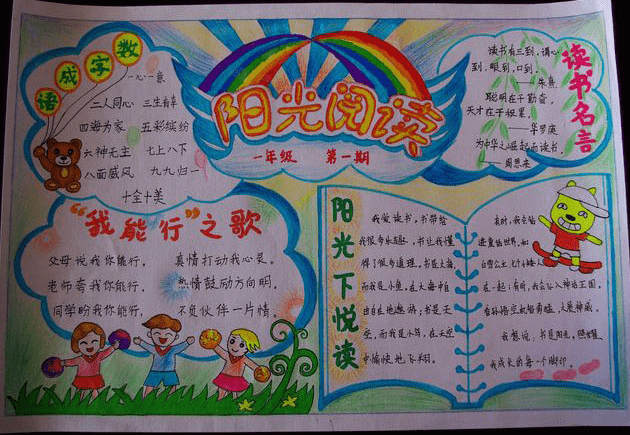 阳光阅读
一年级 第一期
数字成语
一心一意
二人同心 三生有幸
四海为家 五彩缤纷
六神无主 七上八下
八面威风 九九归一
十全十美
读书名言
读书有三到，谓心
到，眼到，口到。
——朱熹
聪明在于勤奋，
天才在于积累。
——华罗庚
为中华之崛起而读书。
——周恩来
“我能行”之歌
父母说我你能行，
真情打动我心灵。
老师夸我你能行，
热情鼓励方向明。
同学盼我你能行，
不负伙伴一片情。
阳光下悦读
我爱读书，书带给
我很多乐趣，书让我懂
得了很多道理。书是大海，
而我是小鱼，在大海中自
由自在地遨游；书是天
空，而我是小鸟，在天空
中愉快地飞翔。
有时，我会钻
进童话世界，和
白雪公主、七个小矮人
在一起；有时，我会
我想说，书是阳光，照耀
我成长的每一个脚印。